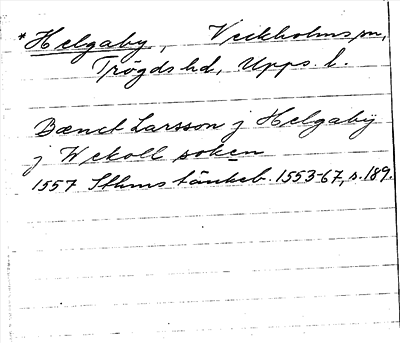 *Helgaby, Veckholms sn,
Trögds hd, Upps. l.
Bænct Larsson j Helgaby
j Wekoll soken
1557 Sthms tänkeb. 1553-67, s. 189.